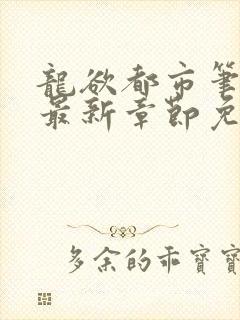 龍欲都市筆
最新章節免
多余的乖寶寶